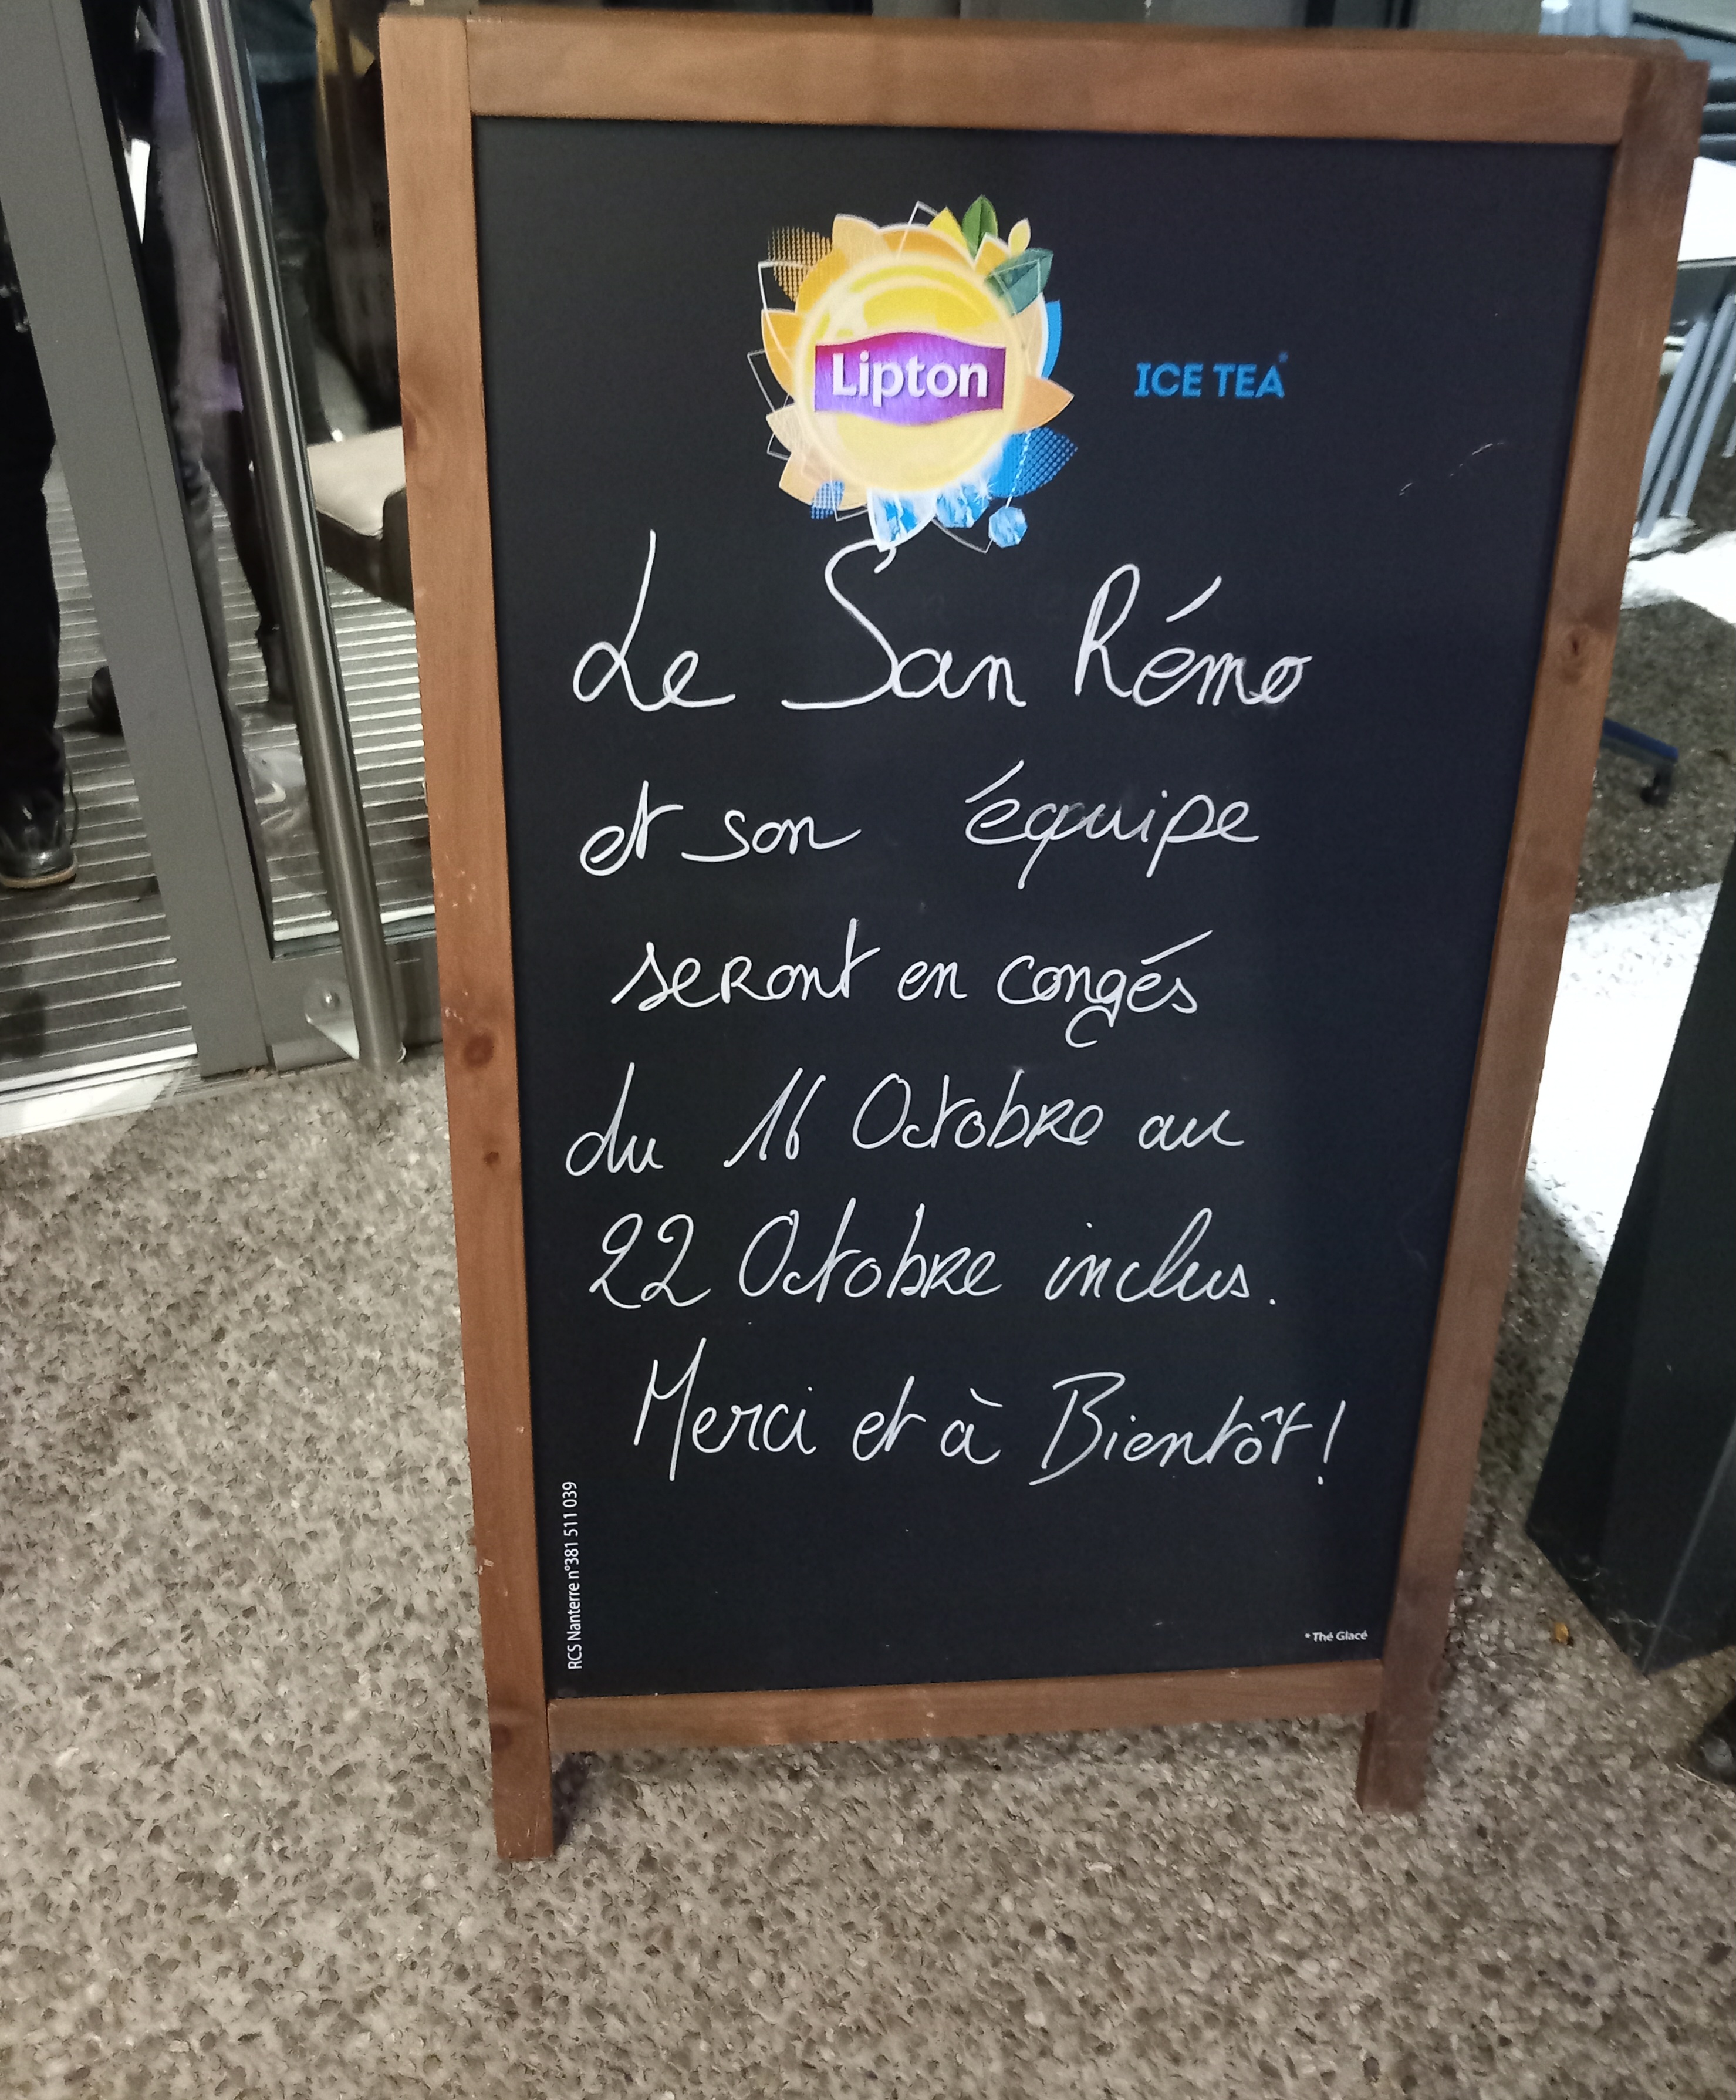 Lipton
ICE TEA*
Le San Rémo
et son équipe
seront en congés
du 16 Octobre au
22 Octobre inclus.
Merci et à Bientôt !
RCS Nanterre n°381 511 039
* Thé Glacé